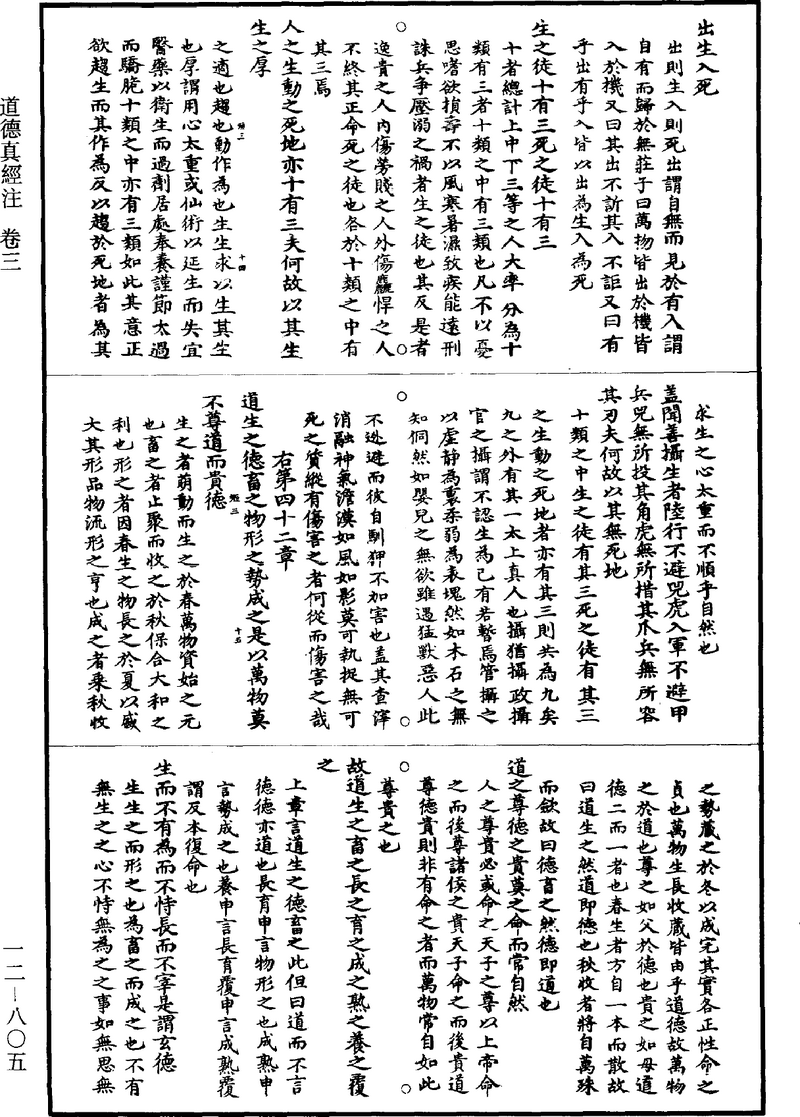 道德真經注　卷三
出生入死
出則生入則死出謂自無而見於有入謂
自有而歸於無莊子曰萬物皆出於機皆
入於機又曰其出不訢其入不詎又曰有
乎出有乎入皆以出為生入為死
生之徒十有三死之徒十有三
十者總計上中下三等之人大率分為十
類有三者十類之中有三類也凡不以憂
思嗜欲損壽不以風寒暑濕致疾能遠刑
誅兵爭壓溺之禍者生之徒也其反是者
逸貴之人內傷勞賤之人外傷麤悍之人
不終其正命死之徒也各於十類之中有
其三焉
人之生動之死地亦十有三夫何故以其生
生之厚
之適也趨也動作為也生生求以生其生
也厚謂用心太重或仙術以延生而失宜
醫藥以衛生而過劑居處奉養謹節太過
而驕脆十類之中亦有三類如此其意正
欲趨生而其作為反以趨於死地者為其
求生之心太重而不順乎自然也
蓋聞善攝生者陸行不避兕虎入軍不避甲
兵兕無所投其角虎無所措其爪兵無所容
其刃夫何故以其無死地
十類之中生之徒有其三死之徒有其三
之生動之死地者亦有其三則共為九矣
九之外有其一太上真人也攝猶攝政攝
官之攝謂不認生為己有若暫焉管攝之
以虛靜為裏柔弱為表塊然如木石之無
知侗然如嬰兒之無欲雖遇猛獸惡人此
不迯避而彼自馴狎不加害也蓋其查滓
消融神氣澹漠如風如影莫可執捉無可
死之質縱有傷害之者何從而傷害之哉
右第四十二章
道生之德畜之物形之勢成之是以萬物莫
不尊道而貴德
生之者萌動而生之於春萬物資始之元
也畜之者止聚而收之於秋保合大和之
利也形之者因春生之物長之於夏以盛
大其形品物流形之亨也成之者乘秋收
之勢藏之於冬以成完其實各正性命之
貞也萬物生長收藏皆由乎道德故萬物
之於道也尊之如父於德也貴之如母道
德二而一者也春生者方自一本而散故
曰道生之然道即德也秋收者將自萬殊
而斂故曰德畜之然德即道也
道之尊德之貴莫之命而常自然
人之尊貴必或命之天子之尊以上帝命
之而後尊諸侯之貴天子命之而後貴道
尊德貴則非有命之者而萬物常自如此
尊貴之也
故道生之畜之長之育之成之熟之養之覆
之
上章言道生之德畜之此但曰道而不言
德德亦道也長育申言物形之也成熟申
言勢成之也養申言長育覆申言成熟覆
謂反本復命也
生而不有為而不恃長而不宰是謂玄德
生生之而形之也為畜之而成之也不有
無生之之心不恃無為之之事如無思無
一二—八〇五